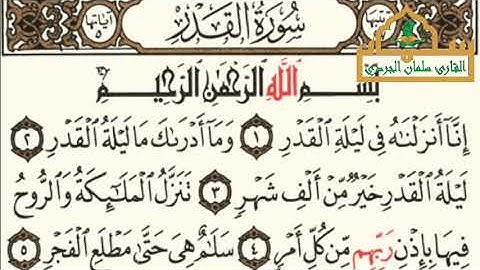 سُورَةُ القَدْرِ
آياتها ٥
القارئ سلمان الجردي
بِسْمِ اللَّهِ الرَّحْمَٰنِ الرَّحِيمِ
إِنَّا أَنزَلْنَاهُ فِي لَيْلَةِ الْقَدْرِ ١ وَمَا أَدْرَاكَ مَا لَيْلَةُ الْقَدْرِ ٢
لَيْلَةُ الْقَدْرِ خَيْرٌ مِّنْ أَلْفِ شَهْرٍ ٣ تَنَزَّلُ الْمَلَائِكَةُ وَالرُّوحُ
فِيهَا بِإِذْنِ رَبِّهِم مِّن كُلِّ أَمْرٍ ٤ سَلَامٌ هِيَ حَتَّىٰ مَطْلَعِ الْفَجْرِ ٥